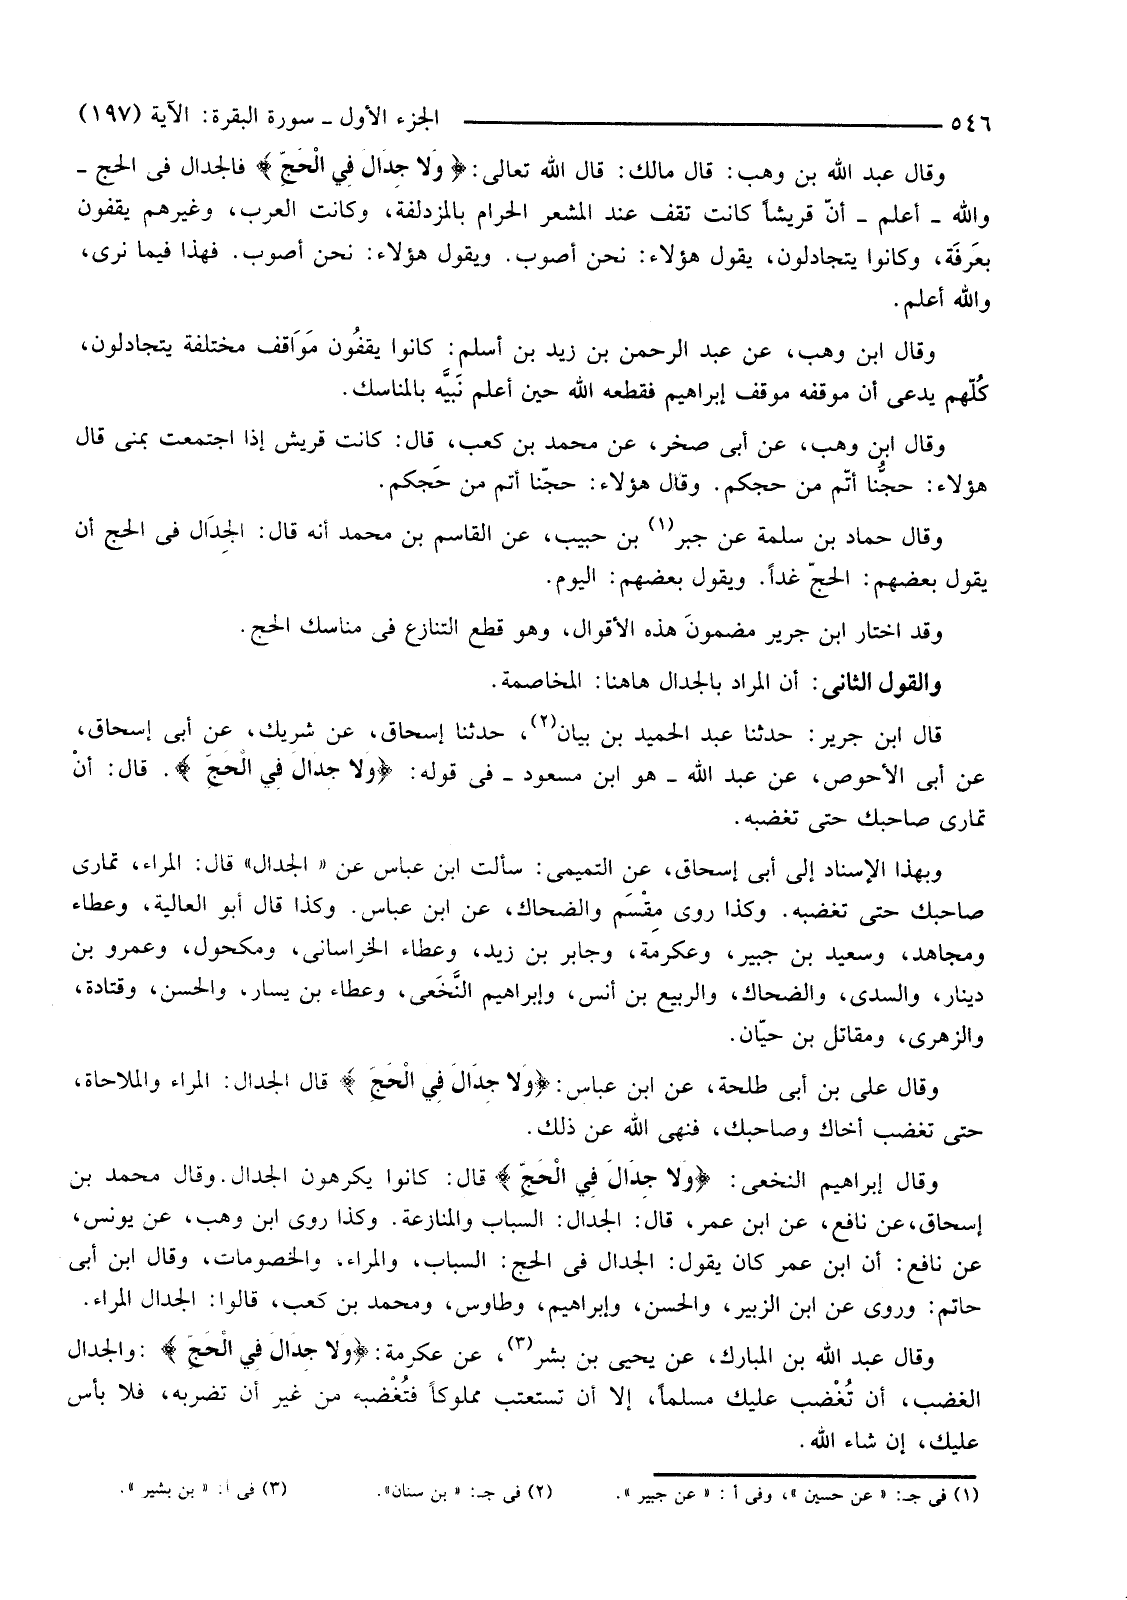 ٥٤٦ ــــــــــــ الجزء الأول ـ سورة البقرة: الآية (١٩٧)
وقال عبد الله بن وهب: قال مالك: قال الله تعالى: ﴿ وَلا جِدَالَ فِي الْحَجِّ ﴾ فالجدال فى الحج ـ
والله ـ أعلم ـ أنّ قريشاً كانت تقف عند المشعر الحرام بالمزدلفة، وكانت العرب، وغيرهم يقفون
بعَرفَة، وكانوا يتجادلون، يقول هؤلاء: نحن أصوب. ويقول هؤلاء: نحن أصوب. فهذا فيما نرى،
والله أعلم.
وقال ابن وهب، عن عبد الرحمن بن زيد بن أسلم: كانوا يقفُون مَوَاقف مختلفة يتجادلون،
كُلّهم يدعى أن موقفه موقف إبراهيم فقطعه الله حين أعلم نَبيَّه بالمناسك.
وقال ابن وهب، عن أبى صخر، عن محمد بن كعب، قال: كانت قريش إذا اجتمعت بمنى قال
هؤلاء: حجُّنا أتّم من حجكم. وقال هؤلاء: حجّنا أتم من حَجكم.
وقال حماد بن سلمة عن جبر(١) بن حبيب، عن القاسم بن محمد أنه قال: الجِدَال فى الحج أن
يقول بعضهم: الحجّ غداً. ويقول بعضهم: اليوم.
وقد اختار ابن جرير مضمونَ هذه الأقوال، وهو قطع التنازع فى مناسك الحج.
والقول الثانى: أن المراد بالجدال هاهنا: المخاصمة.
قال ابن جرير: حدثنا عبد الحميد بن بيان(٢)، حدثنا إسحاق، عن شريك، عن أبى إسحاق،
عن أبى الأحوص، عن عبد الله ـ هو ابن مسعود ـ فى قوله: ﴿وَلا جِدَالَ فِي الْحَجِّ ﴾. قال: أنْ
تمارى صاحبك حتى تغضبه.
وبهذا الإسناد إلى أبى إسحاق، عن التميمى: سألت ابن عباس عن « الجدال» قال: المراء، تمارى
صاحبك حتى تغضبه. وكذا روى مِقْسَم والضحاك، عن ابن عباس. وكذا قال أبو العالية، وعطاء
ومجاهد، وسعيد بن جبير، وعكرمة، وجابر بن زيد، وعطاء الخراسانى، ومكحول، وعمرو بن
دينار، والسدى، والضحاك، والربيع بن أنس، وإبراهيم النَّخَعى، وعطاء بن يسار، والحسن، وقتادة،
والزهرى، ومقاتل بن حيّان.
وقال على بن أبى طلحة، عن ابن عباس: ﴿وَلا جِدَالَ فِي الْحَجِّ ﴾ قال الجدال: المراء والملاحاة،
حتى تغضب أخاك وصاحبك، فنهى الله عن ذلك.
وقال إبراهيم النخعى: ﴿وَلا جِدَالَ فِي الْحَجِّ ﴾ قال: كانوا يكرهون الجدال. وقال محمد بن
إسحاق، عن نافع، عن ابن عمر، قال: الجدال: السباب والمنازعة. وكذا روى ابن وهب، عن يونس،
عن نافع: أن ابن عمر كان يقول: الجدال فى الحج: السباب، والمراء، والخصومات، وقال ابن أبى
حاتم: وروى عن ابن الزبير، والحسن، وإبراهيم، وطاوس، ومحمد بن كعب، قالوا: الجدال المراء.
وقال عبد الله بن المبارك، عن يحيى بن بشر(٣)، عن عكرمة: ﴿وَلا جِدَالَ فِي الْحَجِّ ﴾ :والجدال
الغضب، أن تُغْضب عليك مسلماً، إلا أن تستعتب مملوكاً فتُغْضبه من غير أن تضربه، فلا بأس
عليك، إن شاء الله.
(١) فى جـ: « عن حسين »، وفى أ : « عن جبير ». (٢) فى جـ: « بن سنان». (٣) فى أ: « بن بشير ».